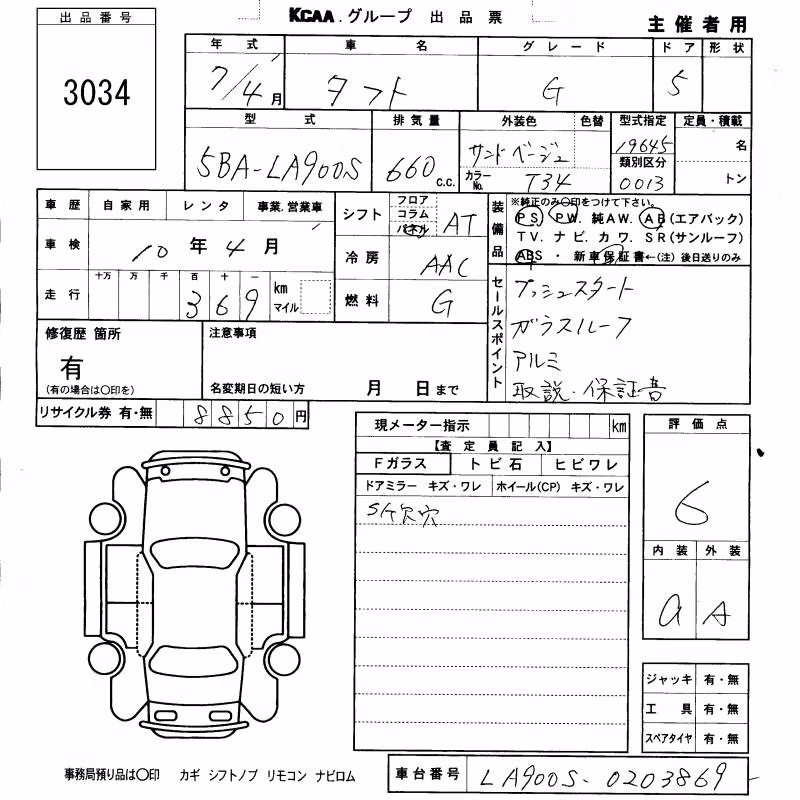 KCAA.グループ 出品票
主催者用
出品番号
3034
年式 車名 グレード ドア 形状
7/4月 タフト G 5
型式 排気量 外装色 色替 型式指定 定員・積載
5BA-LA900S 660 c.c. サンドベージュ 19645 名
カラーNo. T34 類別区分 0013 トン
車歴 自家用 レンタ 事業.営業車
車検 10年4月
走行 十万 万 千 百 十 一
369 km マイル
シフト フロア コラム パネル AT
冷房 AAC
燃料 G
装備品 ※純正のみ〇印をつけて下さい。
PS. PW. 純AW. AB(エアバック)
TV. ナビ. カワ. SR(サンルーフ)
ABS ・ 新車保証書←(注) 後日送りのみ
セールスポイント
プッシュスタート
ガラスルーフ
アルミ
取説・保証書
修復歴 箇所
有
(有の場合は〇印を)
注意事項
名変期日の短い方 月 日まで
リサイクル券 有・無 8850円
現メーター指示 km
【査定員記入】
Fガラス トビ石 ヒビワレ
ドアミラー キズ・ワレ ホイール(CP) キズ・ワレ
S欠穴
評価点
6
内装 外装
a A
ジャッキ 有・無
工具 有・無
スペアタイヤ 有・無
事務局預り品は〇印 カギ シフトノブ リモコン ナビロム
車台番号 LA900S-0203869